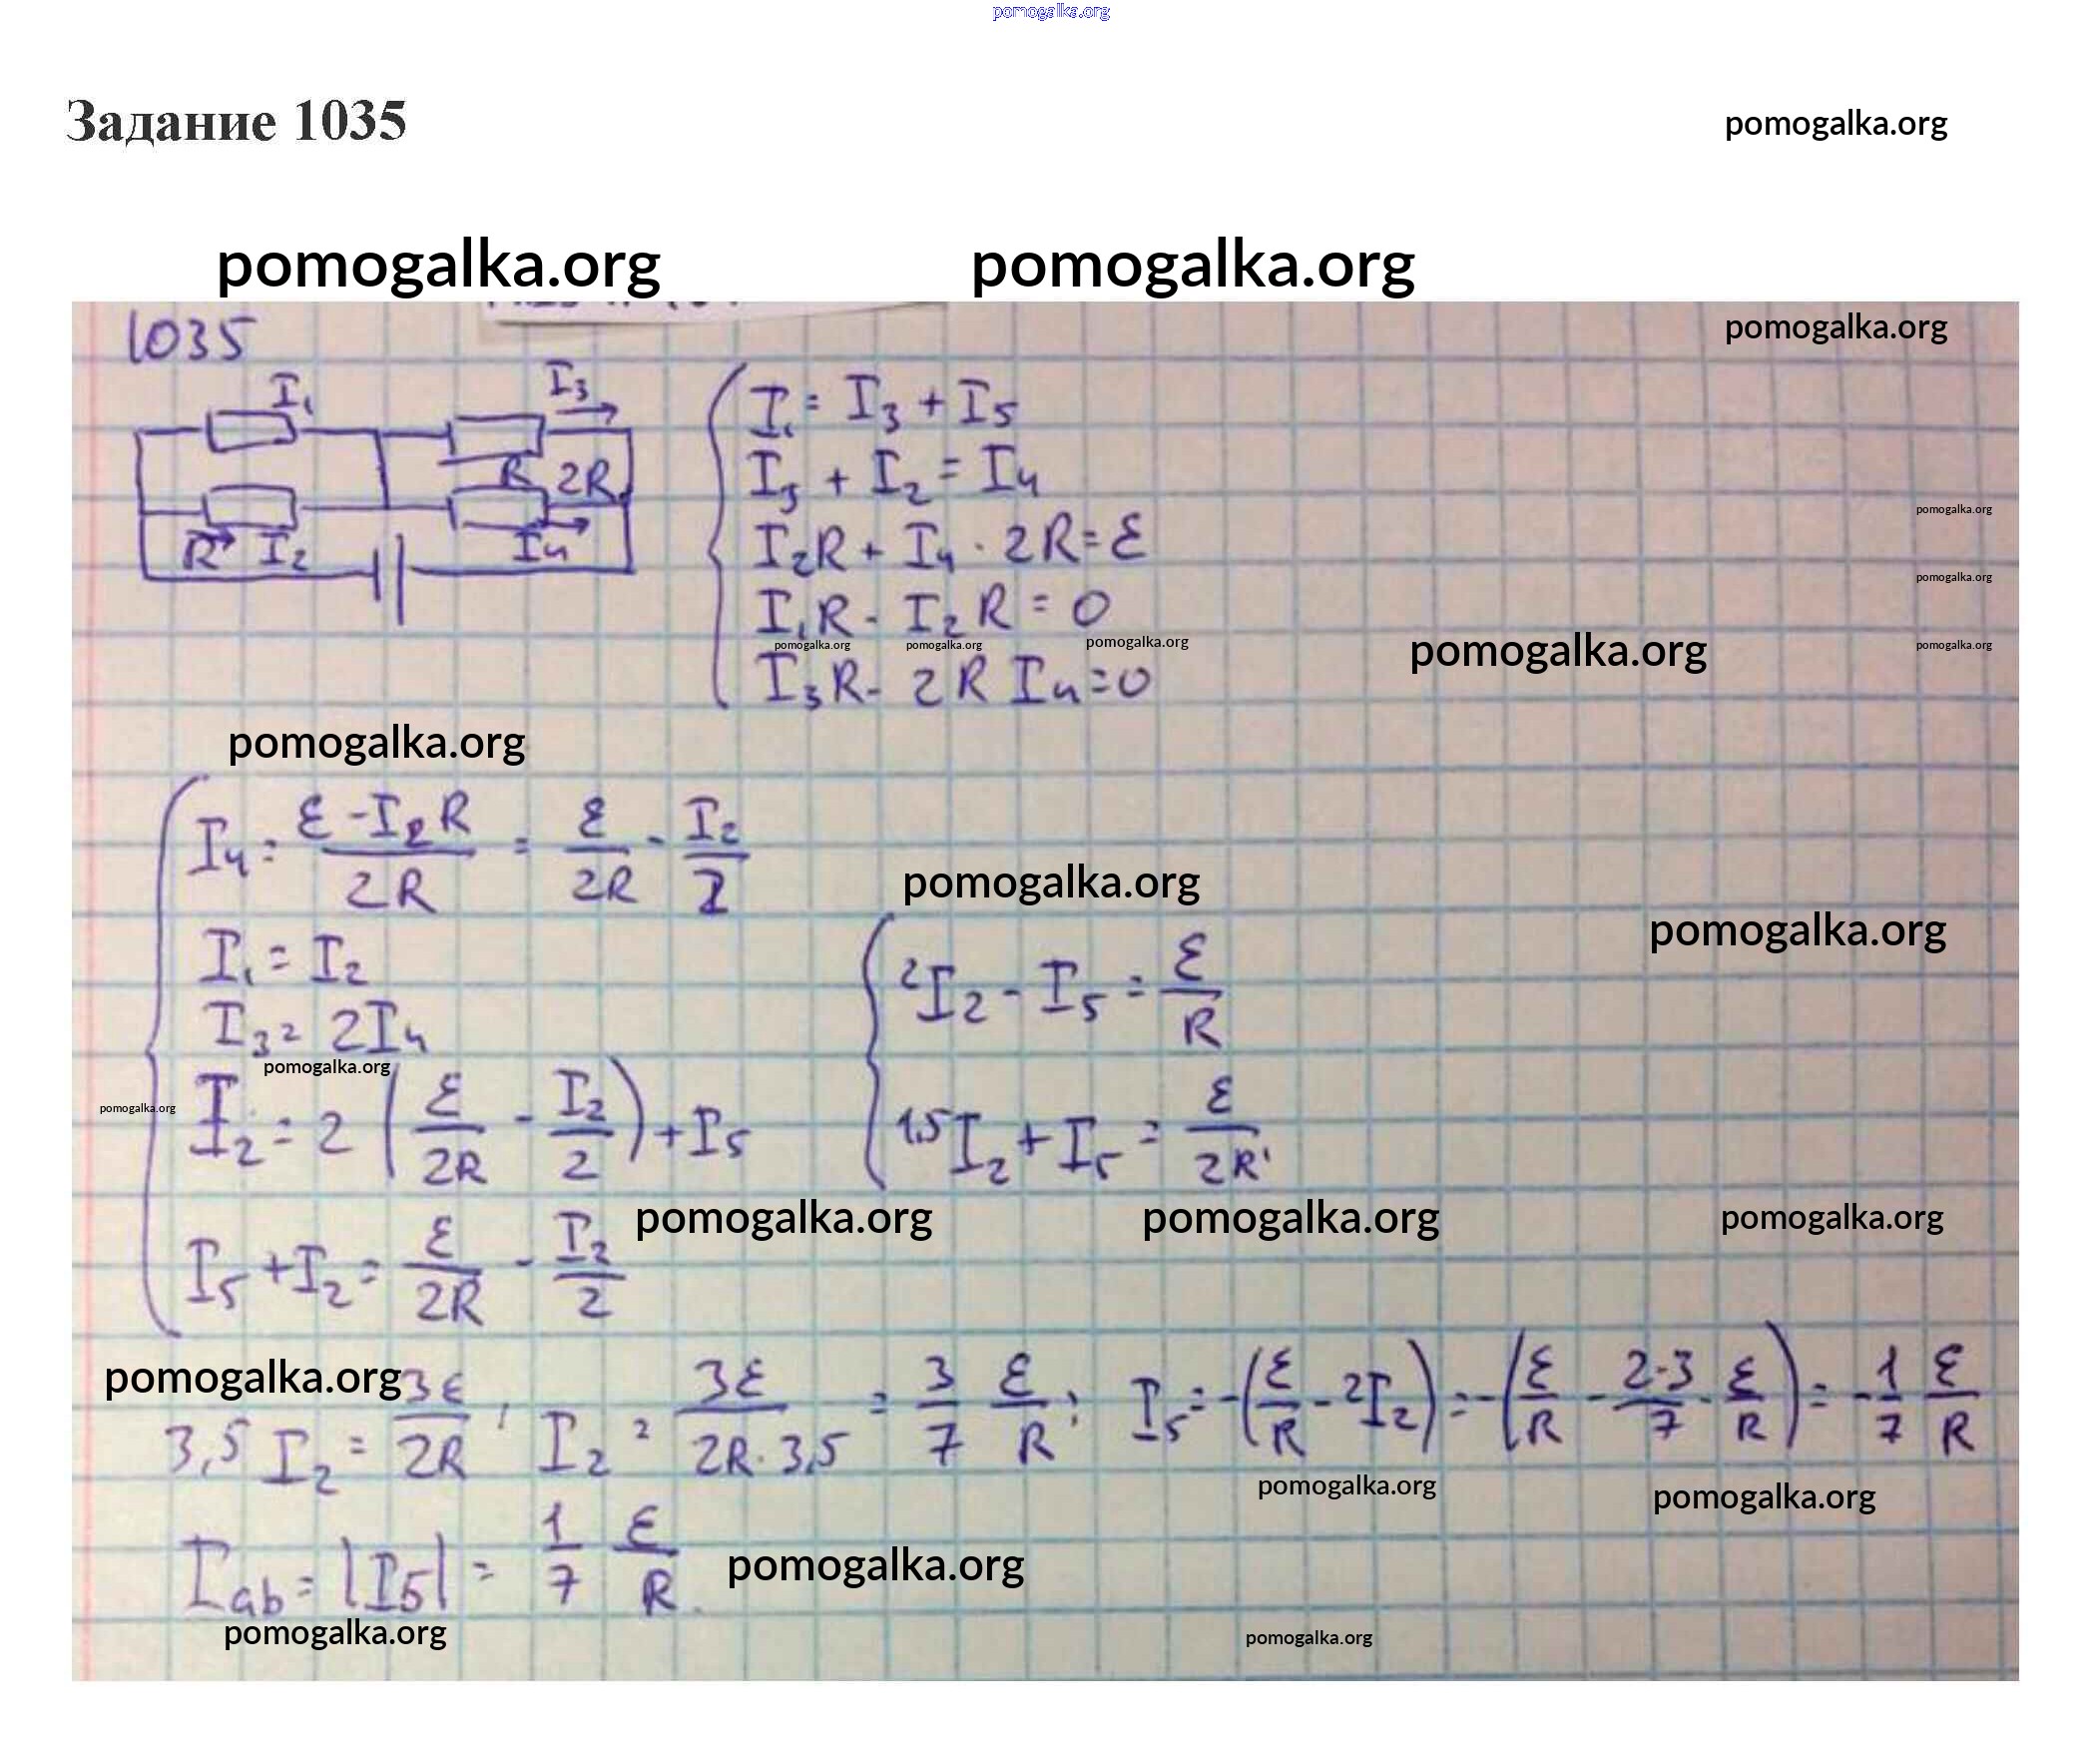 pomogalka.org
Задание 1035
pomogalka.org
pomogalka.org pomogalka.org
pomogalka.org
1035
I₁ I₃
R 2R
R I₂ I₄
I₁ = I₃ + I₅
I₃ + I₂ = I₄
I₂R + I₄ · 2R = ε
I₁R - I₂R = 0
I₃R - 2R I₄ = 0
pomogalka.org
pomogalka.org
pomogalka.org pomogalka.org pomogalka.org pomogalka.org pomogalka.org
pomogalka.org
I₄ = (ε - I₂R)/2R = ε/2R - I₂/2
I₁ = I₂
I₃ = 2I₄
I₂ = 2(ε/2R - I₂/2) + I₅
I₅ + I₂ = ε/2R - I₂/2
pomogalka.org
pomogalka.org
2I₂ - I₅ = ε/R
1,5I₂ + I₅ = ε/2R
pomogalka.org
pomogalka.org
pomogalka.org pomogalka.org pomogalka.org
pomogalka.org
3,5 I₂ = 3ε/2R ; I₂ = 3ε/(2R · 3,5) = 3/7 ε/R ; I₅ = -(ε/R - 2I₂) = -(ε/R - 2·3/7 · ε/R) = - 1/7 ε/R
pomogalka.org pomogalka.org
Iab = |I₅| = 1/7 ε/R.
pomogalka.org
pomogalka.org pomogalka.org